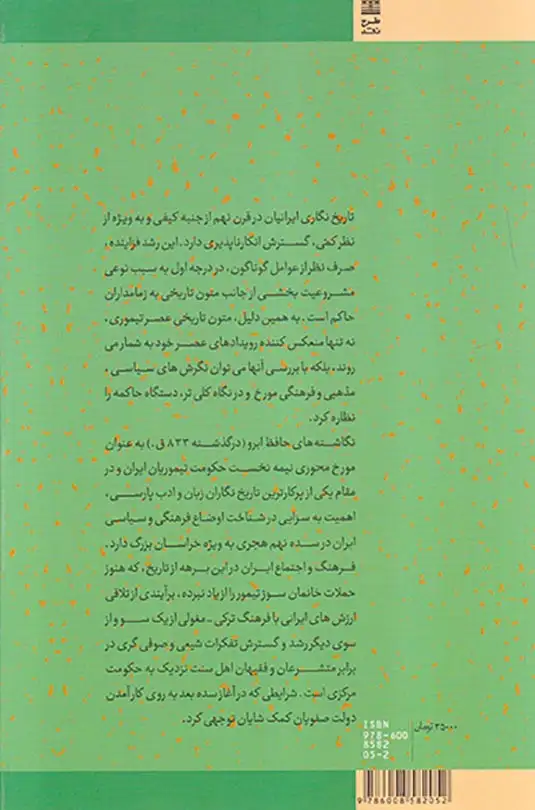 طرح
نقد
تاریخ نگاری ایرانیان در قرن نهم از جنبه کیفی و به ویژه از
نظر کمّی، گسترش انکارناپذیری دارد. این رشد فزاینده،
صرف نظر از عوامل گوناگون، در درجه اول به سبب نوعی
مشروعیت بخشی از جانب متون تاریخی به زمامداران
حاکم است. به همین دلیل، متون تاریخی عصر تیموری،
نه تنها منعکس کننده رویدادهای عصر خود به شمار می
روند، بلکه با بررسی آنها می توان نگرش های سیاسی،
مذهبی و فرهنگی مورخ و در نگاه کلی تر، دستگاه حاکمه را
نظاره کرد.
نگاشته های حافظ ابرو (درگذشته ۸۳۳ ق.) به عنوان
مورخ محوری نیمه نخست حکومت تیموریان ایران و در
مقام یکی از پرکارترین تاریخ نگاران زبان و ادب پارسی،
اهمیت به سزایی در شناخت اوضاع فرهنگی و سیاسی
ایران در سده نهم هجری به ویژه خراسان بزرگ دارد.
فرهنگ و اجتماع ایران در این برهه از تاریخ، که هنوز
حملات خانمان سوز تیمور را از یاد نبرده، برآیندی از تلاقی
ارزش های ایرانی با فرهنگ ترکی - مغولی از یک سو و از
سوی دیگر رشد و گسترش تفکرات شیعی و صوفی گری در
برابر متشرعان و فقیهان اهل سنت نزدیک به حکومت
مرکزی است. شرایطی که در آغاز سده بعد به روی کار آمدن
دولت صفویان کمک شایان توجهی کرد.
۳۵۰۰۰ تومان
ISBN
978-600
8582
05-2
9786008582052